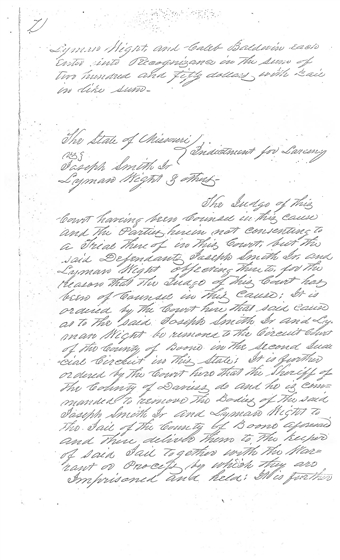 Lyman Wight and Caleb Baldwin each
enter into Recognizance in the sum of
two hundred and fifty dollars with bail
in like sum.
The State of Missouri
vs } Indictment for Larceny
Joseph Smith Jr
Lyman Wight & others
The Judge of this
Court having been Counsel in this cause
and the Parties herein not consenting to
a Trial thereof in this Court, but the
said Defendants Joseph Smith Jr. and
Lyman Wight objecting thereto, for the
reason that the Judge of this Court has
been of Counsel in this Cause; It is
ordered by the Court here that said cause
as to the said Joseph Smith Jr and Ly-
man Wight be removed to the Circuit Court
of the County of Boone in the second Judi-
cial Circuit in this State; It is further
ordered by the Court here that the Sheriff of
the County of Daviess do and he is com-
manded to remove the Bodies of the said
Joseph Smith Jr and Lyman Wight to
the Jail of the County of Boone aforesaid
and there deliver them to the keeper
of said Jail together with the War-
rant or Process by which they are
Imprisoned and held; It is further